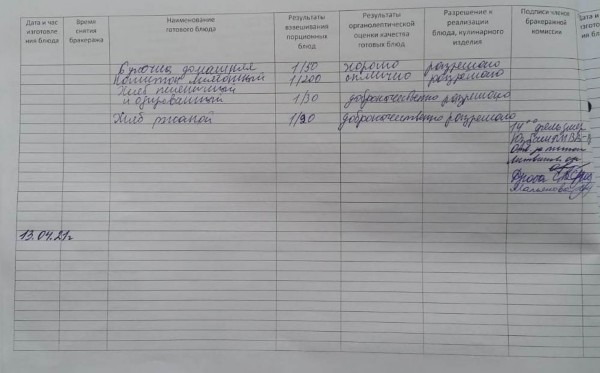 Дата и час изготовле ния блюда
Время снятия бракеража
Наименование готового блюда
Результаты взвешивания порционных блюд
Результаты органолептической оценки качества готовых блюд
Разрешение к реализации блюда, кулинарного изделия
Подписи члена бракеражной комиссии
Дата и
Булочка домашняя 1/50 хорошо разрешаю
Напиток лимонный 1/200 отлично разрешаю
Хлеб пшеничный
и обогащенный 1/30 доброкачественно разрешаю
Хлеб ржаной 1/30 доброкачественно разрешаю
14⁰⁰
13.04.21г